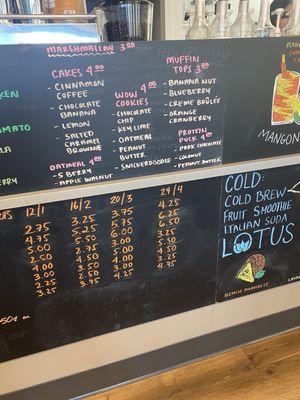 MARSHMALLOW 3.00
CAKES 4.00
- CINNAMON COFFEE
- CHOCOLATE BANANA
- LEMON
- SALTED CARAMEL BROWNIE
OATMEAL 4.00
- 5 BERRY
- APPLE WALNUT
WOW 4.00
COOKIES
- CHOCOLATE CHIP
- KEY LIME
- OATMEAL
- PEANUT BUTTER
- SNICKERDOODLE
MUFFIN
TOPS 3.00
- BANANA NUT
- BLUEBERRY
- CREME BRULÉE
- ORANGE CRANBERRY
PROTEIN
PUCK 4.00
- DARK CHOCOLATE
- COCONUT
- PEANUT BUTTER
MANGON
12/1 16/2 20/3 24/4
2.75 3.25 3.75 4.25
4.75 5.25 5.75 6.25
5.00 5.50 6.00 6.50
2.50 2.75 3.00 3.25
4.00 4.50 5.00 5.50
3.00 3.50 4.00 4.50
2.25 3.50 3.00 3.25
3.25 3.75 4.25 4.75
COLD:
COLD BREW
FRUIT SMOOTHIE
ITALIAN SODA
LOTUS